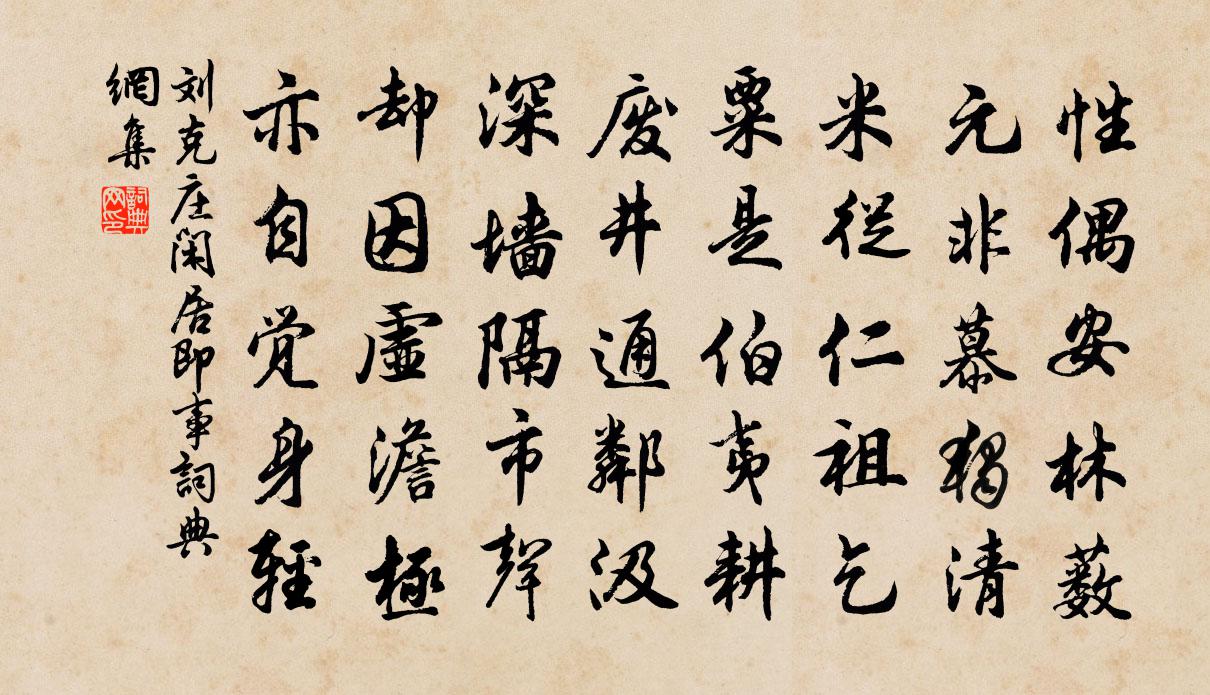 性偶安林薮
元非慕独清
米从仁祖乞
粟是伯夷耕
废井通鄰汲
深墙隔市声
却因虚澹极
亦自觉身轻
刘克庄闲居即事詞典
網集
詞典
网印